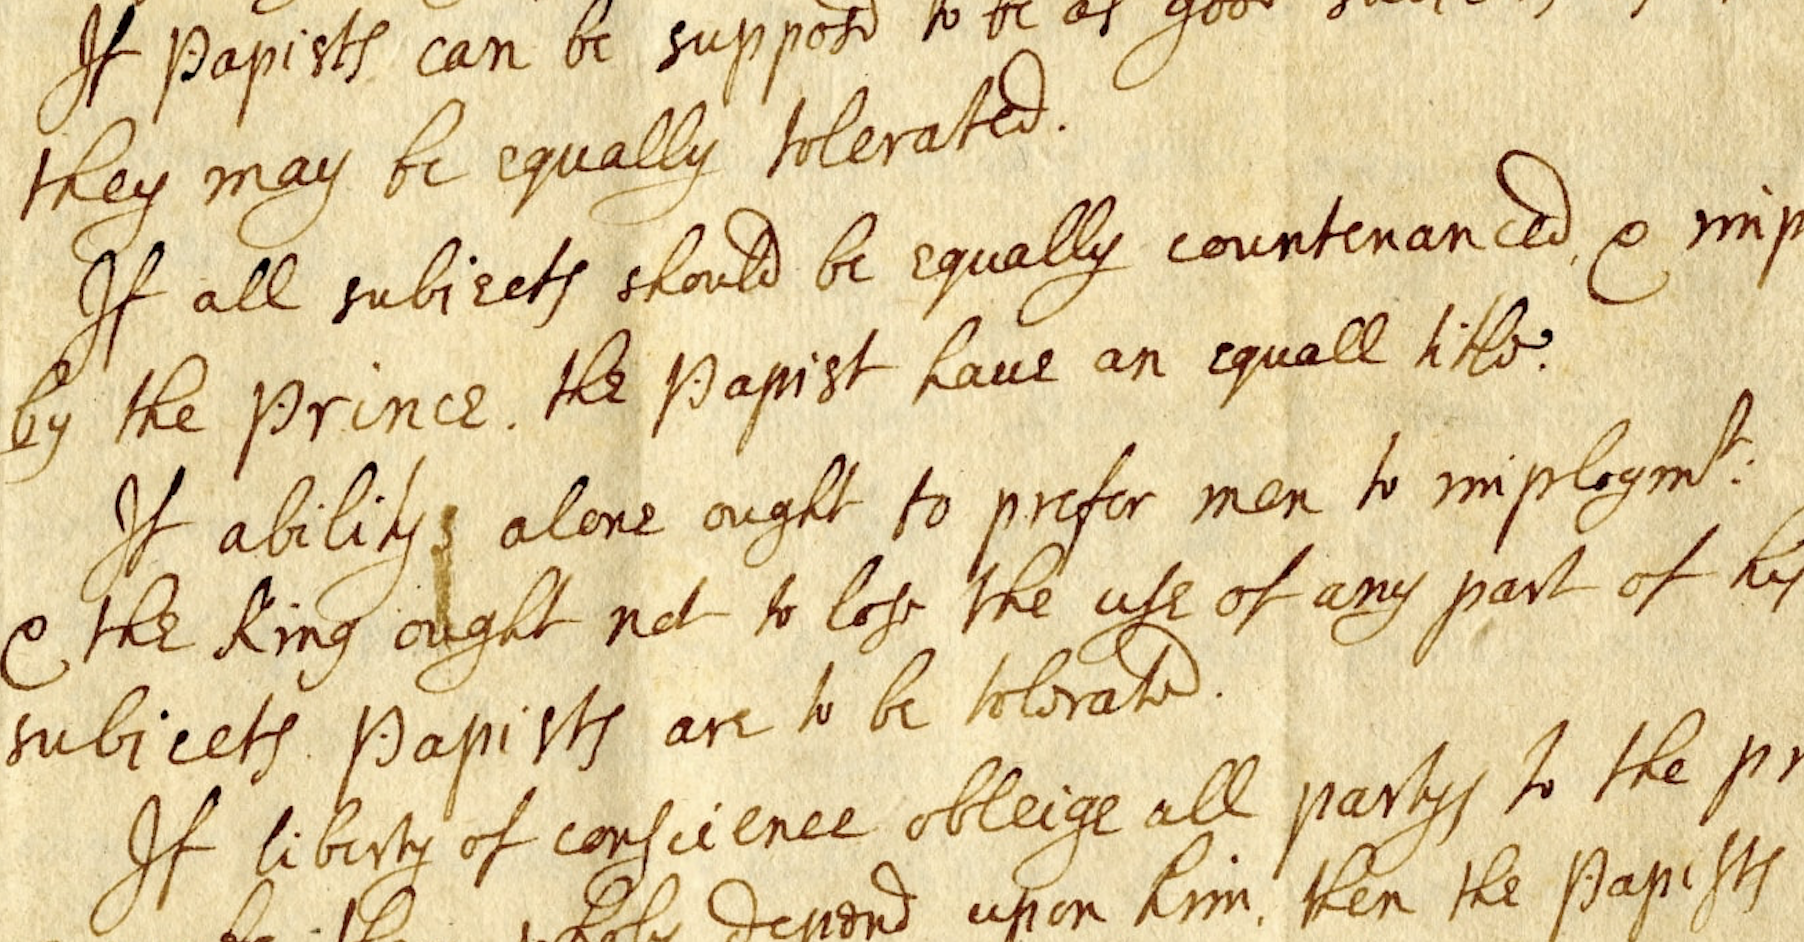 If Papists can be supposd to be as good
they may be equally tolerated.
If all subiects should be equally countenanced, & imp
by the Prince. the Papist have an equall title.
If abilitys alone ought to prefer men to imploymt:
& the King ought not to lose the use of any part of his
subiects. Papists are to be tolerated.
If liberty of conscience obleige all partys to the pr
wholy depend upon him. then the Papists